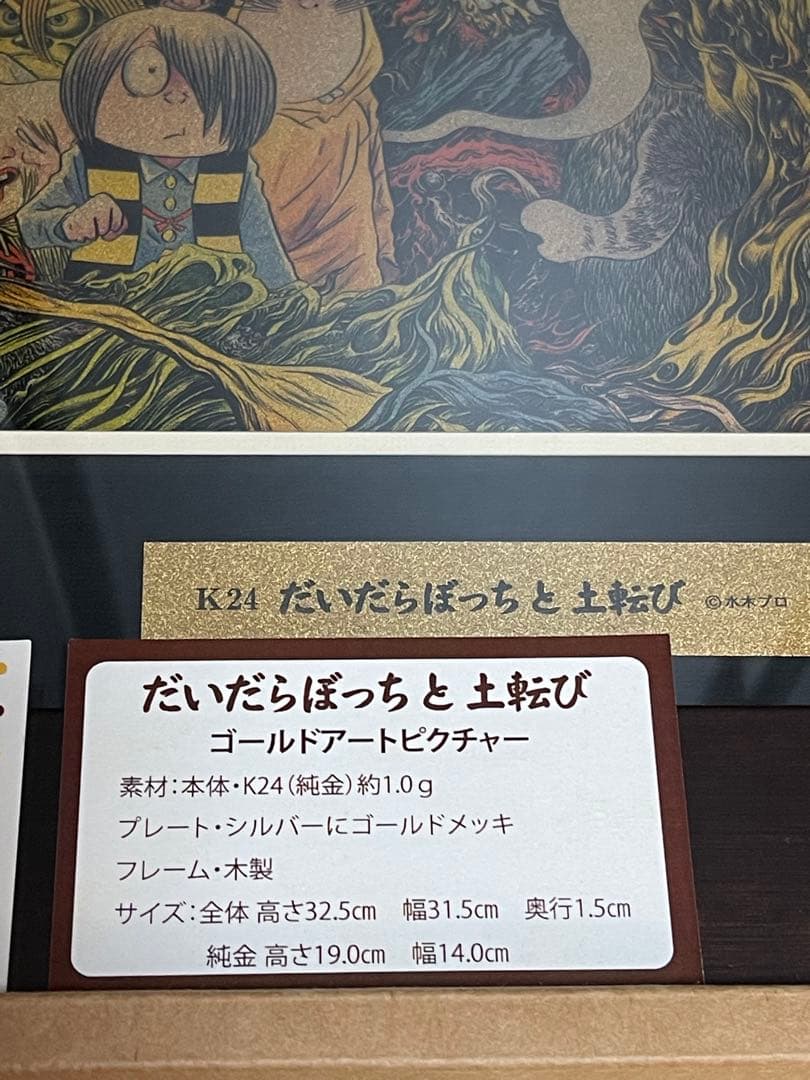 K24 だいだらぼっちと土転び ©水木プロ
だいだらぼっちと土転び
ゴールドアートピクチャー
素材：本体・K24（純金）約1.0g
プレート・シルバーにゴールドメッキ
フレーム・木製
サイズ：全体 高さ32.5㎝　幅31.5㎝　奥行1.5㎝
純金 高さ19.0㎝　幅14.0㎝